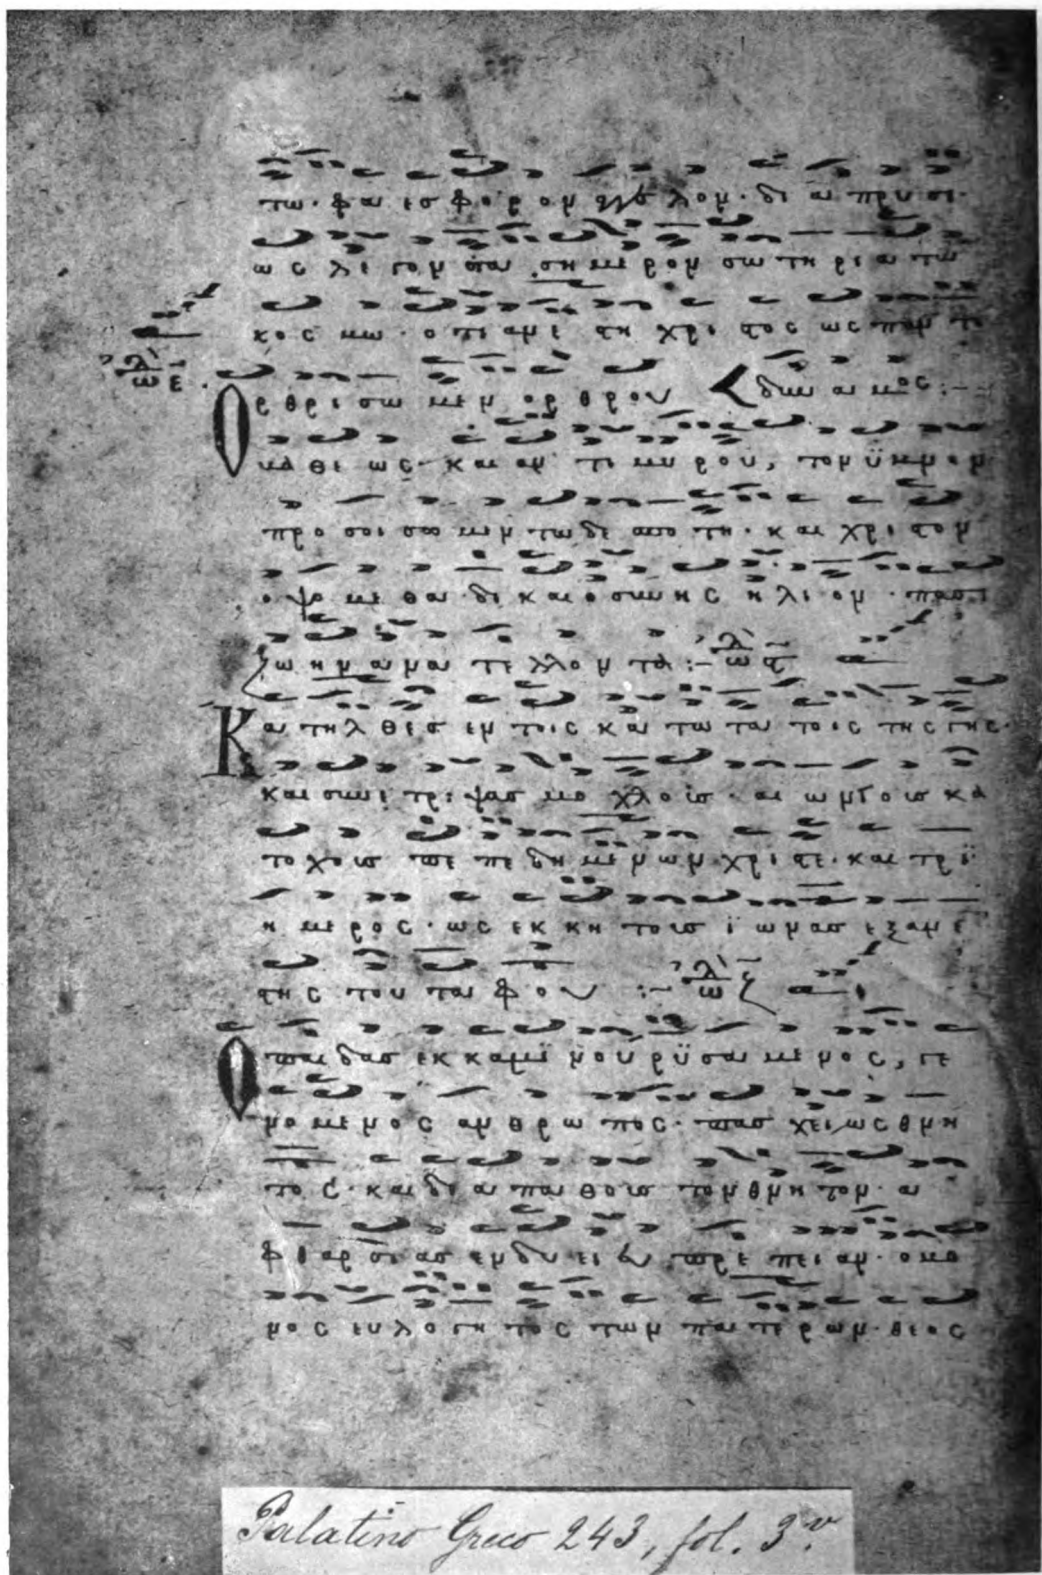 τω· φαεσφορον αγγελον· διαπρυσι·
ως λεγοντα· σημερον σωτηρια τω
κοσμω· οτι ανεστη χριστος ως παντο
ωλ ε
Ορθρισωμεν ορθρου δυναμος:-
βαθεως· και αντι μυρου, τον ϋμνον
προσοισωμεν τω δεσποτη· και χριστον
οψομεθα δικαιοσυνης ηλιον· πασι
ζωην ανατελλοντα:- ωλ ϛ
Κατηλθες εν τοις κατωτατοις της γης·
και συνετριψας μοχλους· αιωνιους κα
τοχους πεπεδημενων χριστε· και τρϊ
ημερος· ως εκ κητους ϊωνας εξανε
στης του ταφου :- ωλ ζ
Ο παιδας εκ καμϊνου ρϋσαμενος, γε
νομενος ανθρωπος· πασχει ως θνη
τος· και δια παθους το θνητον· α
φθαρσιας ενδυει ευπρεπειαν· ο μο
νος ευλογητος των πατερων· θεος
Palatino Greco 243, fol. 3v.